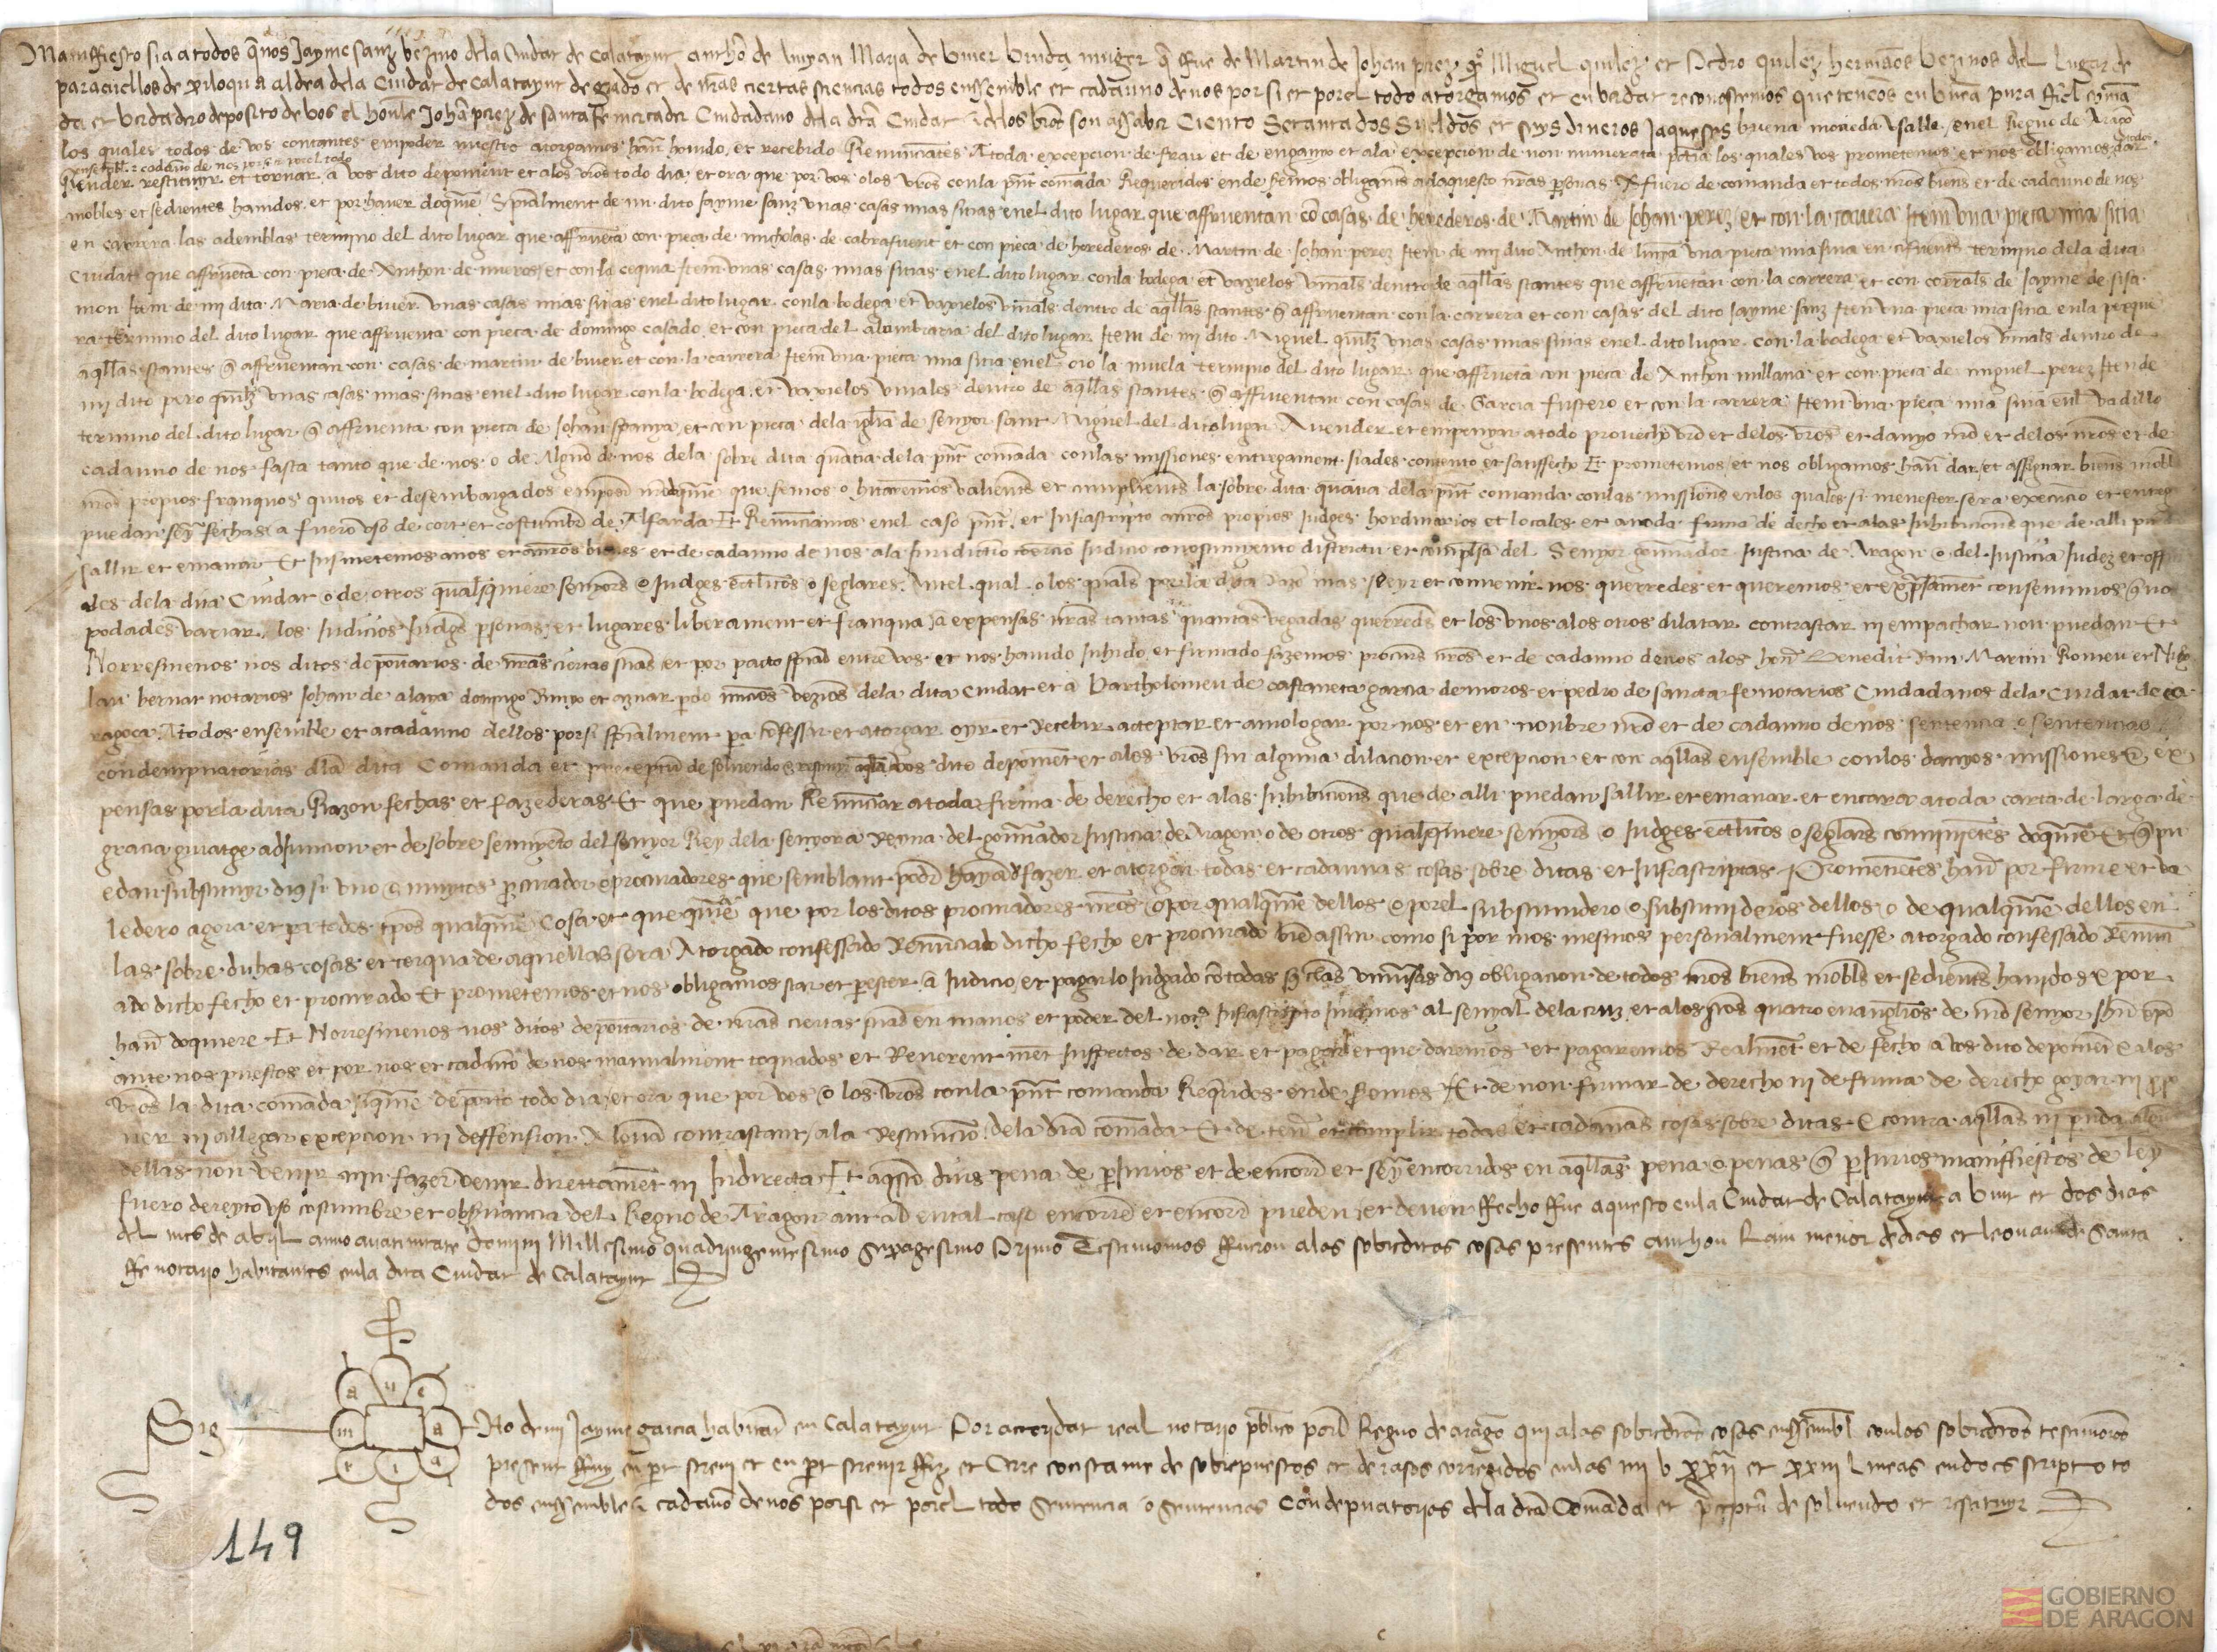 Maniffiesto sia a todos q̃ nos Jayme sanz vezino dela Ciudat de Calatayut anthõ de lunyan Maria de biuer biuda muger q̃ fue de Martin de Johan perez Miguel quilez et Pedro quilez hermãos vezinos del lugar de
paracuellos de xiloqua aldea dela Ciudat de Calatayut de grado et de nr̃as ciertas sciencias todos enssemble et cada uno de nos por si et por el todo atorgamos et en verdat reconescemos que tenemos en buena pura fiel comã
da et verdadero deposito de vos el honrable Johã perez de santa Fe mercader Ciudadano dela dita Ciudat et delos vr̃os son assaber Ciento Setanta dos Sueldos et seys dineros Jaqueses buena moneda vsable en el Regno de Aragõ
los quales todos de vos contantes en poder nuestro atorgamos hauer hauido et recebido Renunciantes A toda excepcion de frau et de enganyo et ala excepcion de non numerata pecunia los quales vos prometemos et nos obligamos dar
ensemble et cadauno de nos por si et por el todo
Render restituyr et tornar a vos dito deponient et alos vr̃os todo dia et ora que por vos o los vr̃os con la pñt comãda Requeridos ende seremos obligantes ad aquesto nr̃as personas A fuero de comanda et todos nr̃os bienes et de cadauno de nos
mobles et sedientes hauidos et por hauer doquiere Specialment de mi dito Jayme sanz vnas casas mias sitias enel dito lugar que affruentan cõ casas de herederos de Martin de Johan perez et con la carrera Item vna pieca mia sitia
en carrera las ademblas termino del dito lugar que affruẽta con pieca de nicholas de cabrafuent et con pieca de herederos de Martin de Johan perez Item de mi dito Anthon de vna pieca mia sitia en cifuentes termino dela dita
Ciudat que affruẽta con pieca de Anthon de mueros et con la cequia Item vnas casas mias sitias enel dito lugar con la bodega et vaxielos vinales dentro de aq̃llas stantes que affruẽtan con la carrera et con corrales de Jayme de sisa
mon Item de mi dita Maria de biuer vnas casas mias sitias enel dito lugar con la bodega et vaxielos vinales dentro de aq̃llas stantes q̃ affruentan con la carrera et con casas del dito Jayme sanz Item vna pieca mia sitia en la peque
ra termino del dito lugar que affruenta con pieca de domingo casado et con pieca del alambraria del dito lugar Item de mi dito Miguel quilez vnas casas mias sitias enel dito lugar con la bodega et vaxielos vinales dentro de
aq̃llas stantes q̃ affruentan con casas de martin de biuer et con la carrera Item vna pieca mia sitia enel la muela termino del dito lugar que affruẽta con pieca de Anthon millana et con pieca de miguel perez Item de
mi dito pero quilez vnas casas mias sitias enel dito lugar con la bodega et vaxielos vinales dentro de aq̃llas stantes q̃ affruentan con casas de Garcia fustero et con la carrera Item vna pieca mia sitia enel vadillo
termino del dito lugar q̃ affruenta con pieca de Johan spanya et con pieca dela iglesia de senyor sant Miguel del dito lugar A vender et empenyar a todo prouecho vr̃o et delos vr̃os et danyo nr̃o et delos nr̃os et de
cadauno de nos fasta tanto que de nos o de Alguno de nos dela sobre dita quãtia dela pñt comãda con las missiones entregament siades contento et satisfecho Et prometemos et nos obligamos hauer dar et assignar bienes mobles
nr̃os propios franquos quitos et desembargados en poder nr̃o do quiere que seremos o hitaremos valientes et cumplientes la sobre dita quãtia dela pñt comanda con las missiones en los quales si menester sera execucio et entrega
puedan seyer fechas a fuero vso de cort et costumbre de Alfarda Et Renunciamos enel caso pñt et Infrascripto a nr̃os propios Judges hordinarios et locales et a toda firma de decho et alas Inhibiciones que de alli puedan
sallir et emanar Et Insmetemos a nos et a nr̃os bienes et de cadauno de nos ala Jurisdictio cohercio Judicio conosciminyento districtu et compulsa del Senyor gouernador Justicia de Aragon o del Justicia Judez et offi
ales dela dita Ciudat o de otros qualesquiere senyores o Judges ecclesiasticos o seglares Antel qual o los quales por la dita Razo mas seyer et conuenir nos querredes et queremos et expressament consentimos q̃ vos
podades variar los Judicios Judges personas et lugares liberament et franqua a expensas nr̃as tantas quantas vegadas querredes et los vnos alos otros dilatar contrastar ni empachar non puedan Et
Norresmenos nos ditos depositarios de nr̃as ciertas sciencias et por pacto special entre vos et nos hauido Inhido et firmado fazemos procuradores nr̃os et de cadauno de nos alos honrados Benedit Ram Martin Romeu et Nicho
lau bernat notarios Johan de alaga domingo Rinyo et aznar pardo nuncios vezinos dela dita ciudat et a Bartholomeu de castaneta garcia de moros et pedro de sancta fe notarios Ciudadanos dela Ciudat de ca
ragoca A todos ensemble et a cadauno dellos por si specialment pora confessar et atorgar oyr et Recebir acceptar et amologar por nos et en nonbre nr̃o et de cadauno de nos sentencia o sentencias
condempnatorias dela dita Comanda et preceptum de soluendo et restituyr aquella a vos dito deponient et alos vr̃os sin alguna dilacion et excepcion et con aq̃llas ensemble con los danyos missiones et ex
pensas por la dita Razon fechas et fazederas Et que puedan Renunciar a toda firma de derecho et alas Inhibiciones que de alli puedan sallir et emanar et encara a toda carta de larga de
gracia guiatge adjuncion et de sobre seimyento del senyor Rey dela senyora Reyna del gouernador Justicia de Aragon o de otros qualesquiere senyores o Judges ecclesiasticos o seglares conuinientes doquiere Et q̃ pu
edan substituyr dius si vno o muytos procurador o procuradores que semblant poder hayan de fazer et atorgar todas et cadaunas cosas sobre ditas et Infrascriptas Prometientes hauer por firme et va
ledero agora et pora todos tp̃os qualquiere Cosa et que quiere que por los ditos procuradores nr̃os o por qualquiere dellos o por el substituydero o substituyderos dellos o de qualquiere dellos en
las sobre dichas cosas et cerqua de aquellas sera Atorgado confessado Renunciado dicho fecho et procurado bien assin como si por nos mesmos personalment fuesse atorgado confessado Renunci
ado dicho fecho et procurado Et prometemos et nos obligamos star et perester a Judicio et pagar lo Judgado con todas sus clausulas vniuersas dius obligacion de todos nr̃os bienes mobles et sedientes hauidos et por
hauer doquiere Et Norresmenos nos ditos depositarios de nr̃as ciertas sciencias en manos et poder del notario Infrascripto Juramos al senyal dela cruz et alos sanctos quatro euangelios de nr̃o senyor
ante nos puestos et por nos et cadauno de nos manualment toquados et Reuerentment Inspectos de dar et pagar et que daremos et pagaremos Realment et de fecho a vos dito deponient et alos
vr̃os la dita comãda deposito todo dia et ora que por vos o los vr̃os con la pñt comanda Requeridos ende seremos Et de non firmar de derecho ni de firma de derecho gozar ni propo
ner ni allegar excepcion ni deffension Alguna contrastant ala Restitucio dela dita comãda Et de tener et complir todas et cadaunas cosas sobre ditas et contra aq̃llas ni partida alguna
dellas non venir nin fazer venir directament ni Indirecta Et aquesto dius pena de perjurios et de encorrer et seyer encorridos en aq̃llas pena o penas q̃ perjurios maniffiestos de ley
fuero dereyto vso costumbre et obseruancia del Regno de Aragon en tal caso encorren et encorrer pueden et deuen Fecho fue aquesto enla Ciudat de Calatayut a vint et dos dias
del mes de abril anno a natiuitate domini Millesimo quadringentesimo Sexagesimo Primo Testimonios fueron alas sobreditas cosas presentes anthon Ram menor de dias et leonart de Santa
Fe notario habitantes enla dita Ciudat de Calatayut
Sig
a u e
m a
r i a
No de mi Jayme garcia habitant en Calatayut Por actoridat real notario publico por el Regno de aragon qui alas sobreditas cosas enssemble con los sobreditos testimonios
present fuy en part screui et en part screuir fiz et Cerre consta me de sobrepuestos et de rasos corregidos en las iiii v xxii et xxiii lineas en do es scripto to
dos enssemble et cadauno de nos por si et por el todo Sentencia o Sentencias Condepnatorias dela dita Comãda et preceptum de soluendo et restituyr
149
GOBIERNO
DE ARAGON